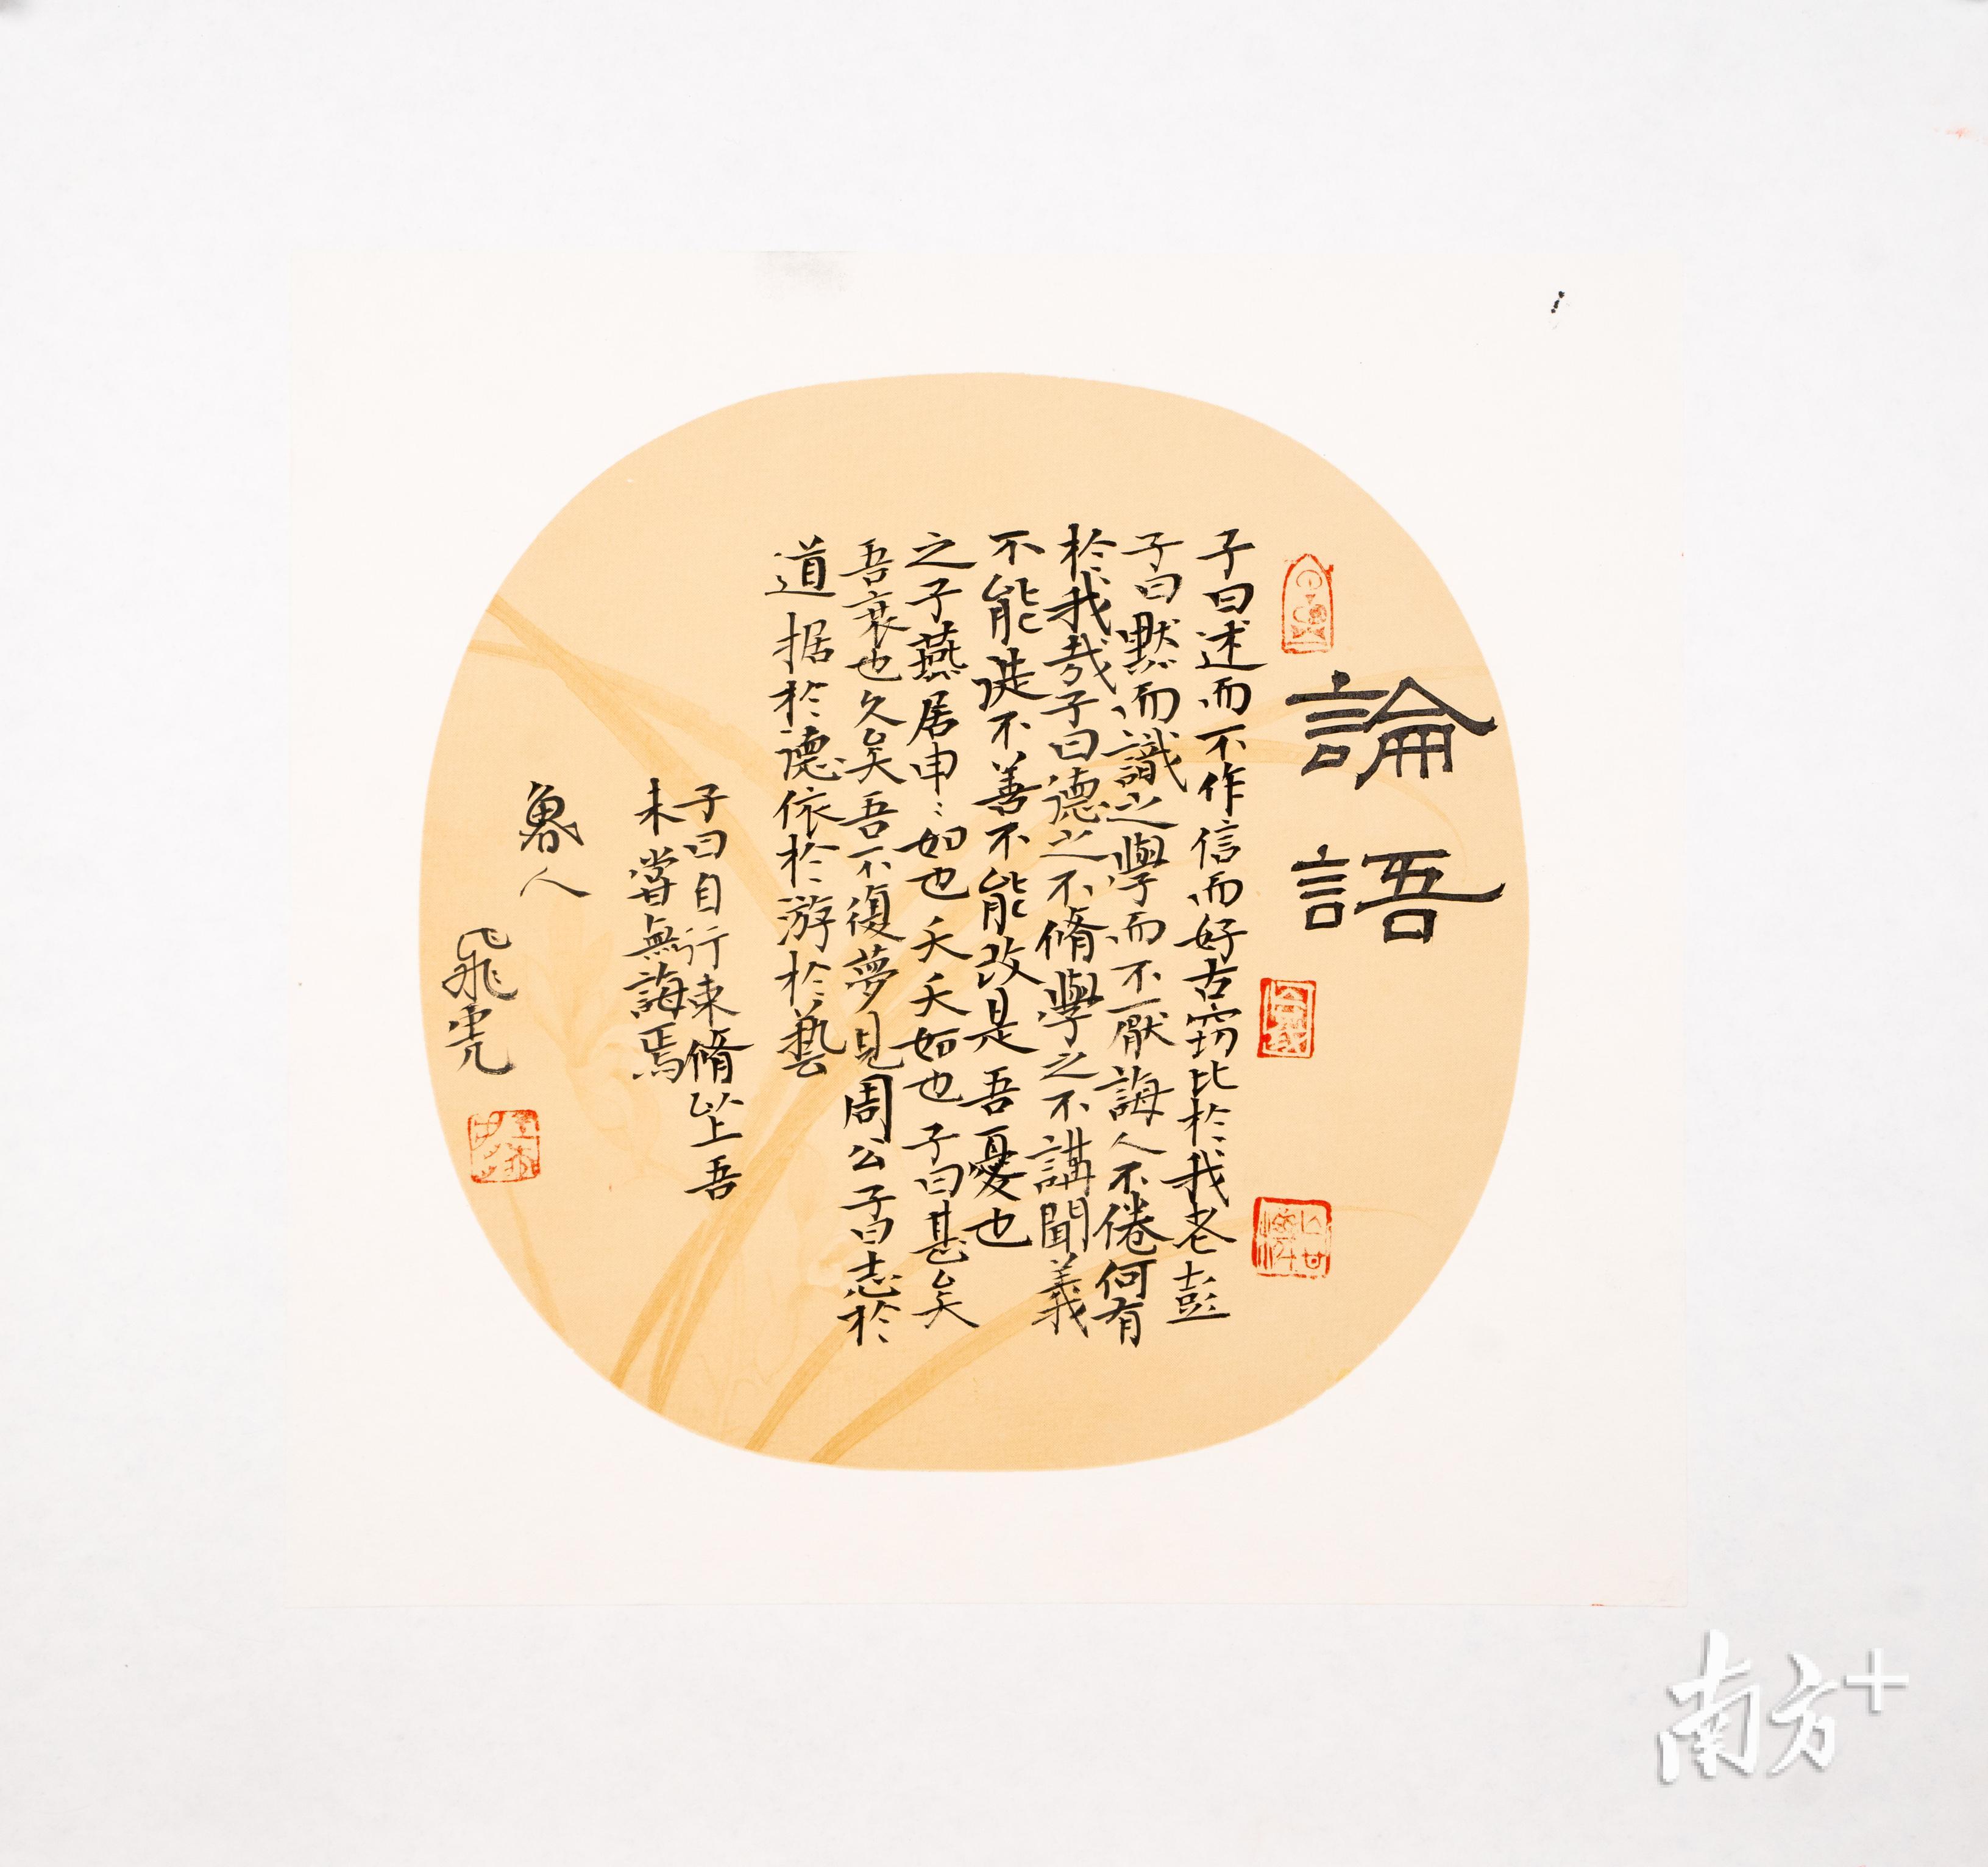 論語
子曰述而不作信而好古竊比於我老彭
子曰默而識之學而不厭誨人不倦何有
於我哉子曰德之不脩學之不講聞義
不能徙不善不能改是吾憂也
之子燕居申〻如也夭夭如也子曰甚矣
吾衰也久矣吾不復夢見周公子曰志於
道據於德依於游於藝
子曰自行束脩以上吾
未嘗無誨焉
魯人
飛虎
南方+